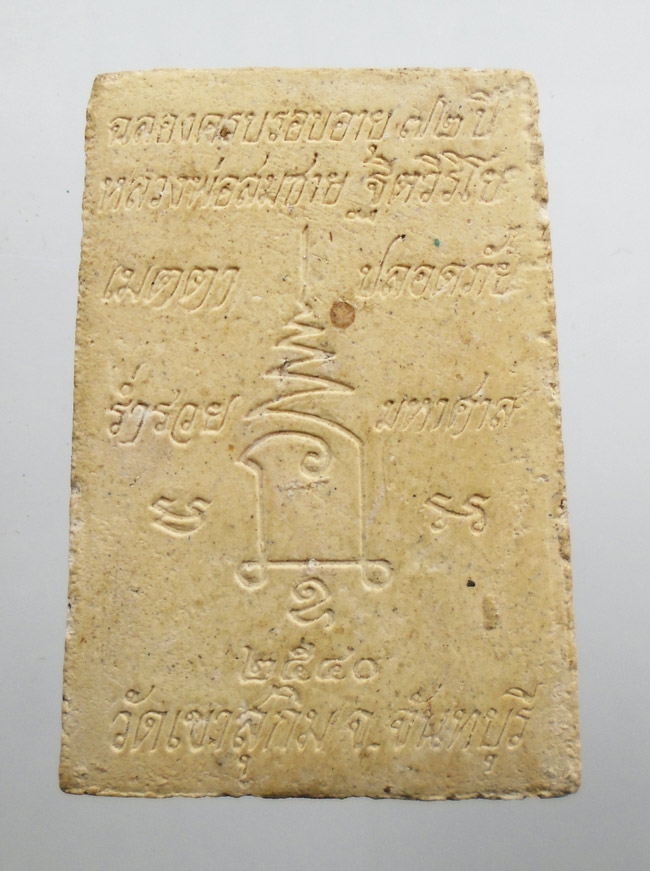 ฉลองครบรอบอายุ ๗๒ ปี
หลวงพ่อสมชาย ฐิตวิริโย
เมตตา ปลอดภัย
ร่ำรวย มหาศาล
๒๕๔๐
วัดเขาสุกิม จ.จันทบุรี